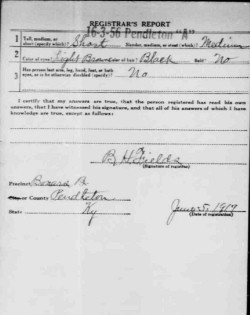 REGISTRAR'S REPORT
16-3-56 Pendleton "A"
1 Tall, medium, or short (specify which)? Short Slender, medium, or stout (which)? Medium
2 Color of eyes? Light Brown Color of hair? Black Bald? No
3 Has person lost arm, leg, hand, foot, or both eyes, or is he otherwise disabled (specify)? No
I certify that my answers are true, that the person registered has read his own answers, that I have witnessed his signature, and that all of his answers of which I have knowledge are true, except as follows:
B H Fields
(Signature of registrar)
Precinct
City or County Pendleton
State Ky
June 5, 1917
(Date of registration)